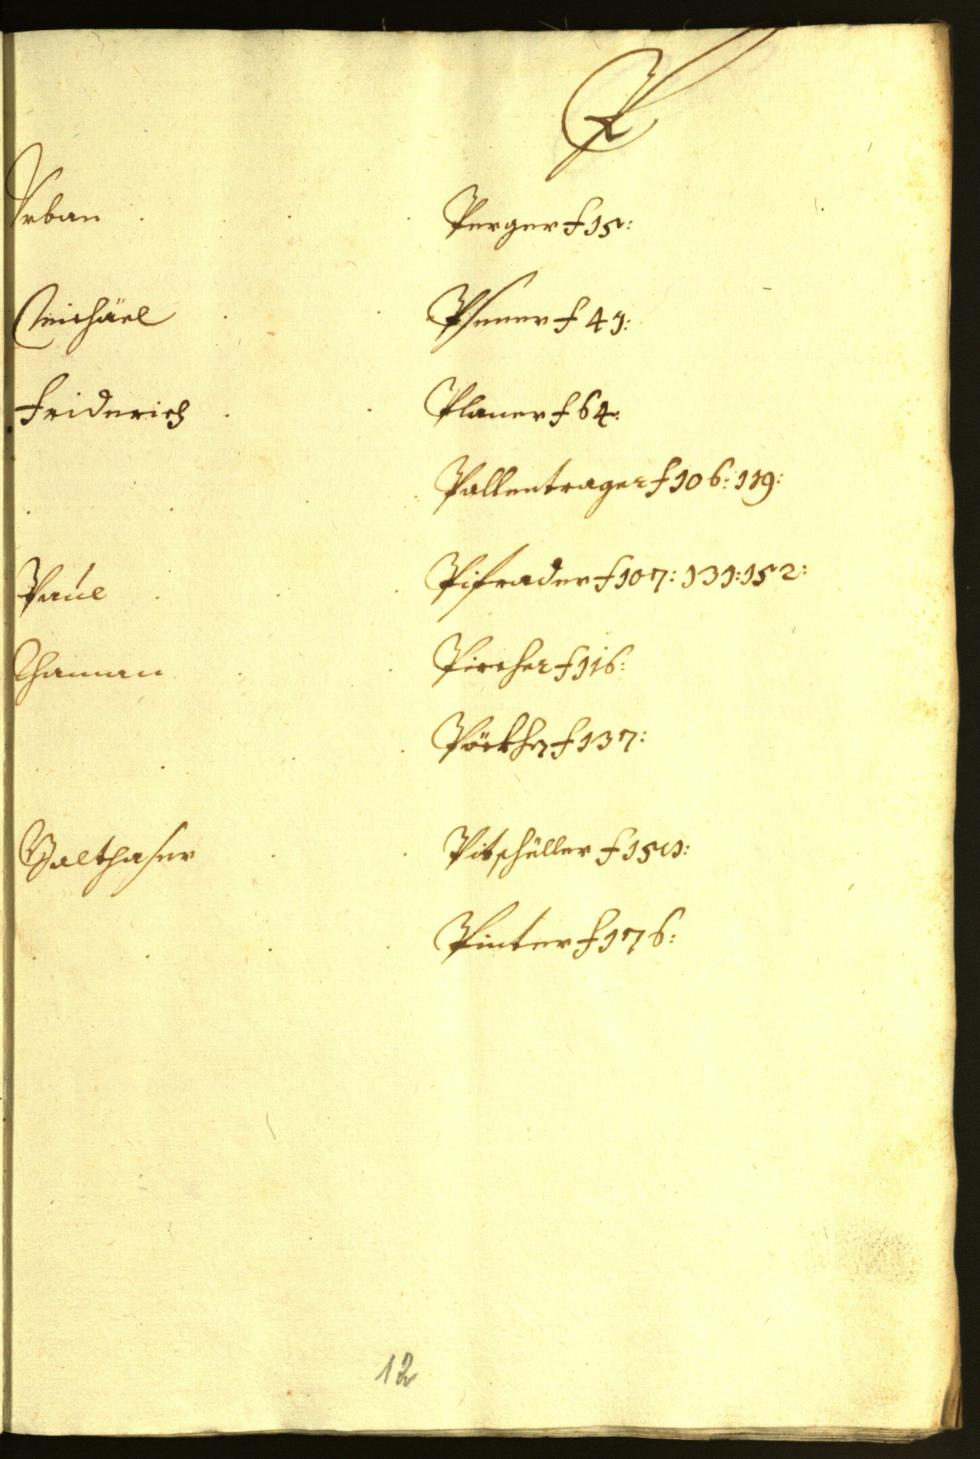 P
Urban Perger f 15:
Michäel Psener f 49:
Friderich Planer f 64:
Pallentrager f 106: 119:
Paul Pifrader f 107: 131: 152:
Thaman Pircher f 116:
Pöckh f 137:
Balthaser Pitschüller f
Pinter f 176:
12